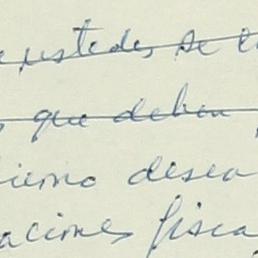 ustedes se l
que deben
ierno desea
aciones fisca